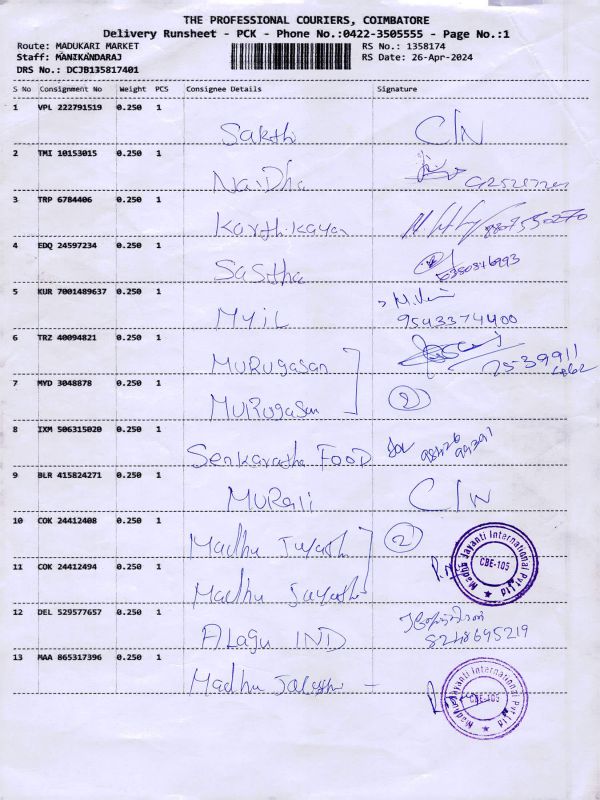 THE PROFESSIONAL COURIERS, COIMBATORE
Delivery Runsheet - PCK - Phone No.:0422-3505555 - Page No.:1
Route: MADUKARI MARKET RS No.: 1358174
Staff: MANIKANDARAJ RS Date: 26-Apr-2024
DRS No.: DCJB135817401
S No Consignment No Weight PCS Consignee Details Signature
1 VPL 222791519 0.250 1
Sakthi C/N
2 TMI 10153015 0.250 1
NaiDha
3 TRP 6784406 0.250 1
Karthikayan 8807550270
4 EDQ 24597234 0.250 1
Sasitha 6380846993
5 KUR 7001489637 0.250 1
Myil 9543374400
6 TRZ 40094821 0.250 1
MURUgasan 75-39911
7 MYD 3048878 0.250 1
MURUgasan 2
8 IXM 506315020 0.250 1
Senkaratha FOOD
9 BLR 415824271 0.250 1
MURali C/N
10 COK 24412408 0.250 1
Madhu Jayathi 2
Madhu Jayanti International Pvt Ltd
CBE-105
11 COK 24412494 0.250 1
Madhu Jayathi
12 DEL 529577657 0.250 1
ALagu IND 8248695219
13 MAA 865317396 0.250 1
Madhu
Madhu Jayanti International Pvt Ltd
CBE-105